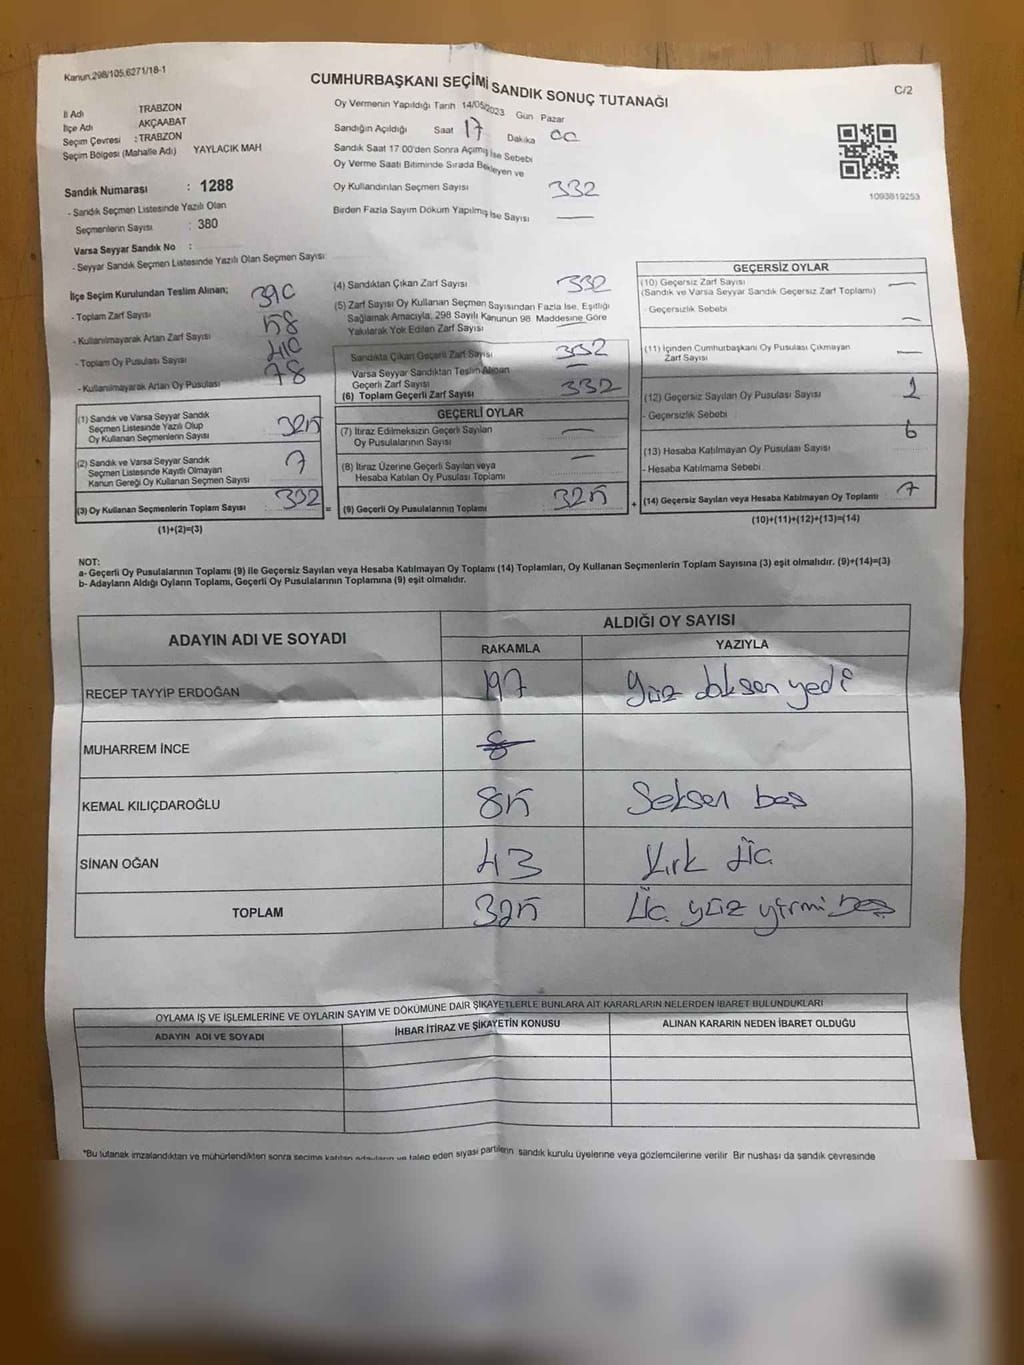 Kanun.298/105,6271/18-1
CUMHURBAŞKANI SEÇİMİ SANDIK SONUÇ TUTANAĞI
C/2
İl Adı TRABZON
İlçe Adı AKÇAABAT
Seçim Çevresi : TRABZON
Seçim Bölgesi (Mahalle Adı) YAYLACIK MAH
Sandık Numarası : 1288
- Sandık Seçmen Listesinde Yazılı Olan
Seçmenlerin Sayısı : 380
Varsa Seyyar Sandık No :
- Seyyar Sandık Seçmen Listesinde Yazılı Olan Seçmen Sayısı
Oy Vermenin Yapıldığı Tarih 14/05/2023 Gün Pazar
Sandığın Açıldığı Saat 17 Dakika 00
Sandık Saat 17 00'den Sonra Açılmış İse Sebebi
Oy Verme Saati Bitiminde Sırada Bekleyen ve
Oy Kullandırılan Seçmen Sayısı 332
Birden Fazla Sayım Döküm Yapılmış İse Sayısı —
1093819253
İlçe Seçim Kurulundan Teslim Alınan;
- Toplam Zarf Sayısı 390
- Kullanılmayarak Artan Zarf Sayısı 58
- Toplam Oy Pusulası Sayısı 410
- Kullanılmayarak Artan Oy Pusulası 78
(1) Sandık ve Varsa Seyyar Sandık
Seçmen Listesinde Yazılı Olup
Oy Kullanan Seçmenlerin Sayısı 325
(2) Sandık ve Varsa Seyyar Sandık
Seçmen Listesinde Kayıtlı Olmayan
Kanun Gereği Oy Kullanan Seçmen Sayısı 7
(3) Oy Kullanan Seçmenlerin Toplam Sayısı 332
(1)+(2)=(3)
(4) Sandıktan Çıkan Zarf Sayısı 332
(5) Zarf Sayısı Oy Kullanan Seçmen Sayısından Fazla İse, Eşitliği
Sağlamak Amacıyla, 298 Sayılı Kanunun 98. Maddesine Göre
Yakılarak Yok Edilen Zarf Sayısı —
Sandıkta Çıkan Geçerli Zarf Sayısı 332
Varsa Seyyar Sandıktan Teslim Alınan
Geçerli Zarf Sayısı —
(6) Toplam Geçerli Zarf Sayısı 332
GEÇERLİ OYLAR
(7) İtiraz Edilmeksizin Geçerli Sayılan
Oy Pusulalarının Sayısı —
(8) İtiraz Üzerine Geçerli Sayılan veya
Hesaba Katılan Oy Pusulası Toplamı —
= (9) Geçerli Oy Pusulalarının Toplamı 325 +
GEÇERSİZ OYLAR
(10) Geçersiz Zarf Sayısı —
(Sandık ve Varsa Seyyar Sandık Geçersiz Zarf Toplamı)
- Geçersizlik Sebebi —
(11) İçinden Cumhurbaşkanı Oy Pusulası Çıkmayan
Zarf Sayısı —
(12) Geçersiz Sayılan Oy Pusulası Sayısı 1
- Geçersizlik Sebebi
(13) Hesaba Katılmayan Oy Pusulası Sayısı 6
- Hesaba Katılmama Sebebi
(14) Geçersiz Sayılan veya Hesaba Katılmayan Oy Toplamı 7
(10)+(11)+(12)+(13)=(14)
NOT:
a- Geçerli Oy Pusulalarının Toplamı (9) ile Geçersiz Sayılan veya Hesaba Katılmayan Oy Toplamı (14) Toplamları, Oy Kullanan Seçmenlerin Toplam Sayısına (3) eşit olmalıdır. (9)+(14)=(3)
b- Adayların Aldığı Oyların Toplamı, Geçerli Oy Pusulalarının Toplamına (9) eşit olmalıdır.
ADAYIN ADI VE SOYADI ALDIĞI OY SAYISI
RAKAMLA YAZIYLA
RECEP TAYYİP ERDOĞAN 197 Yüz doksen yedi
MUHARREM İNCE 8
KEMAL KILIÇDAROĞLU 85 Seksen beş
SİNAN OĞAN 43 Kırk üç
TOPLAM 325 Üç yüz yirmi beş
OYLAMA İŞ VE İŞLEMLERİNE VE OYLARIN SAYIM VE DÖKÜMÜNE DAİR ŞİKAYETLERLE BUNLARA AİT KARARLARIN NELERDEN İBARET BULUNDUKLARI
ADAYIN ADI VE SOYADI İHBAR İTİRAZ VE ŞİKAYETİN KONUSU ALINAN KARARIN NEDEN İBARET OLDUĞU
*Bu tutanak imzalandıktan ve mühürlendikten sonra seçime katılan adayların ve talep eden siyasi partilerin sandık kurulu üyelerine veya gözlemcilerine verilir Bir nushası da sandık çevresinde